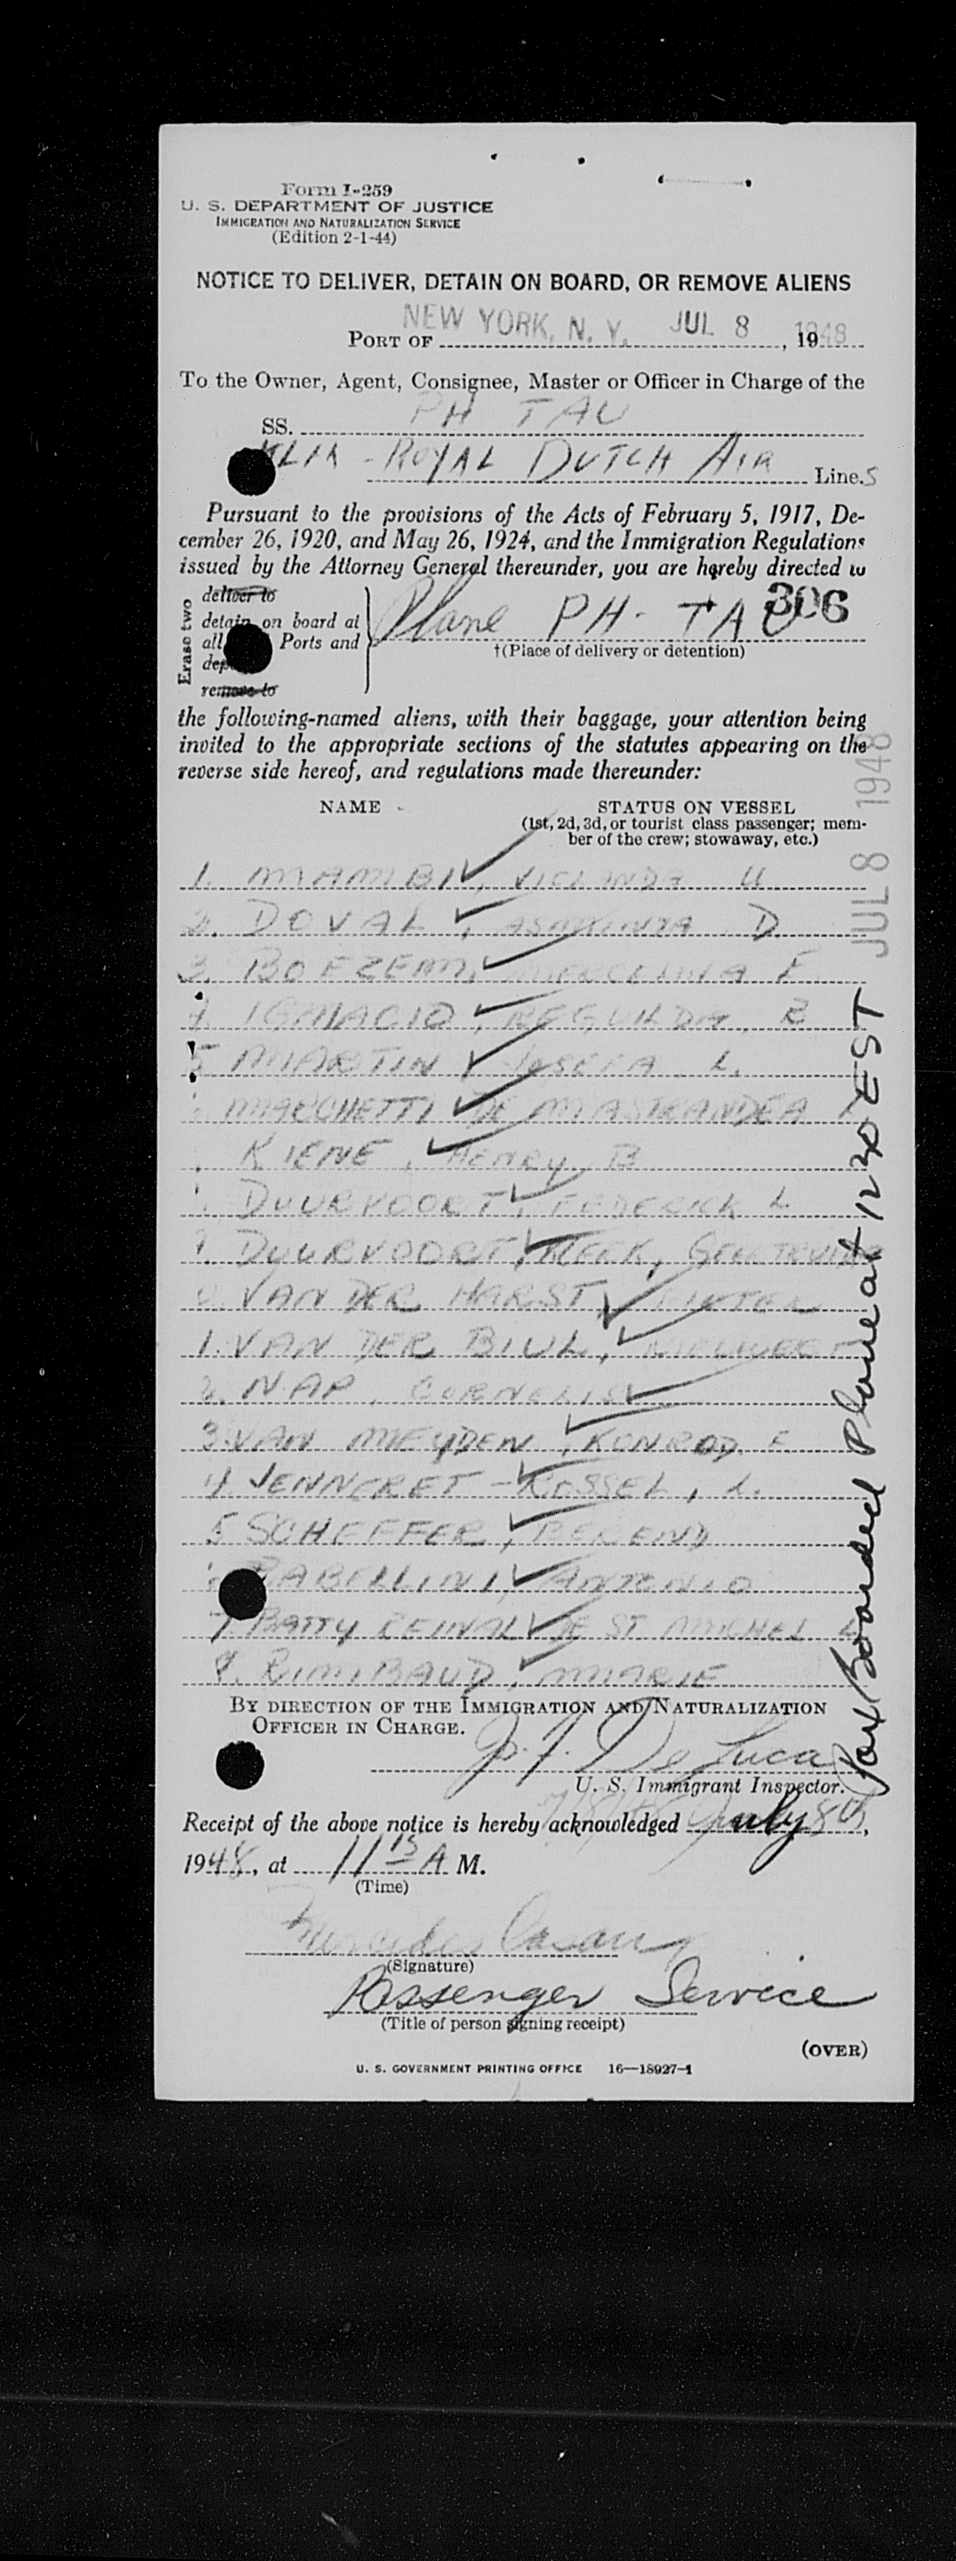 Form I-259
U. S. DEPARTMENT OF JUSTICE
IMMIGRATION AND NATURALIZATION SERVICE
(Edition 2-1-44)
NOTICE TO DELIVER, DETAIN ON BOARD, OR REMOVE ALIENS
PORT OF NEW YORK, N. Y. JUL 8, 1948
To the Owner, Agent, Consignee, Master or Officer in Charge of the
SS. PH TAU
ROYAL DUTCH AIR Line.S
Pursuant to the provisions of the Acts of February 5, 1917, De-
cember 26, 1920, and May 26, 1924, and the Immigration Regulations
issued by the Attorney General thereunder, you are hereby directed to
Erase two
deliver to
detain on board at
all Ports and
remove to
Plane PH-TAU
306
†(Place of delivery or detention)
the following-named aliens, with their baggage, your attention being
invited to the appropriate sections of the statutes appearing on the
reverse side hereof, and regulations made thereunder:
NAME
STATUS ON VESSEL
(1st, 2d, 3d, or tourist class passenger; mem-
ber of the crew; stowaway, etc.)
1. MAMBI, U
2. DOVAL, D
3. BOEZEM, F
4. IGNACIO, REGUILDA, R
5 MARTIN, JOSEFA L.
MARCHETTI DE MASTRANDEA
KIENE, HENRY B
DUURVOORT, FREDERICK L
9. DUURVOORT, KLEEK,
VAN DER HARST, PIETER
1. VAN DER BIUL,
2. NAP, CORNELIS
3. VAN MEYDEN, KONRAD, F.
4 JENNERET - ROSSEL, L.
5 SCHEFFER, BEREND
BABELLINI, ANTONIO
7. BATTY REINAL DE ST MICHEL
8. RIMBAUD, MARIE
JUL 8 1948
Pax Boarded Plane at 1230 EST
BY DIRECTION OF THE IMMIGRATION AND NATURALIZATION
OFFICER IN CHARGE.
De Luca
U. S. Immigrant Inspector.
Receipt of the above notice is hereby acknowledged July 8th,
1948, at 11 15 A M.
(Time)
Mercedes
(Signature)
Passenger Service
(Title of person signing receipt)
(OVER)
U. S. GOVERNMENT PRINTING OFFICE 16—18927-1